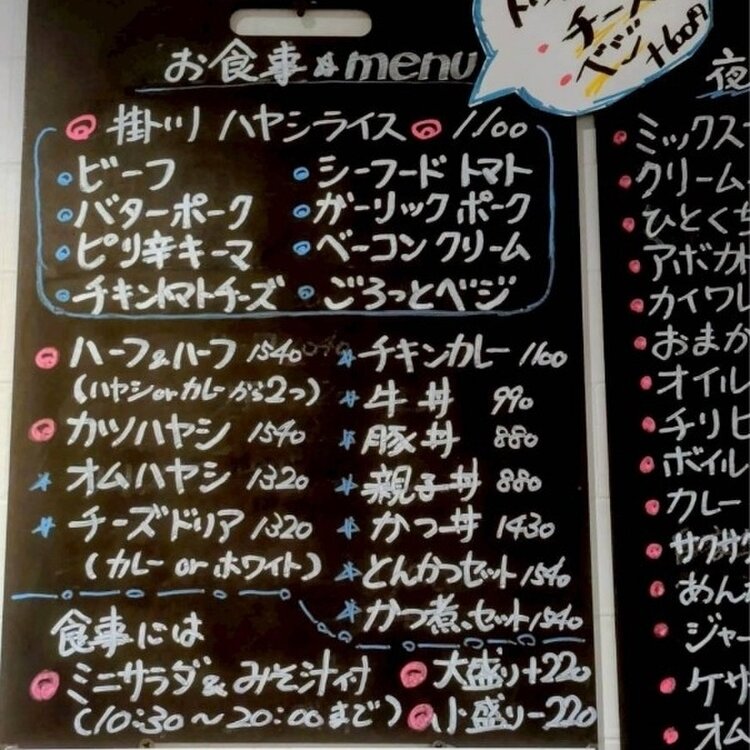 お食事 menu
掛川 ハヤシライス 1100
ビーフ
バターポーク
ピリ辛キーマ
チキントマトチーズ
シーフード トマト
ガーリック ポーク
ベーコン クリーム
ごろっとベジ
ハーフ&ハーフ 1540
(ハヤシorカレーから2つ)
カツハヤシ 1540
オムハヤシ 1320
チーズドリア 1320
(カレー or ホワイト)
チキンカレー 1100
牛丼 990
豚丼 880
親子丼 880
かつ丼 1430
とんかつセット 1540
かつ煮セット 1540
食事には
ミニサラダ&みそ汁付
(10:30〜20:00まで)
大盛り+220
小盛り-220
チーズ
ベジ +600円
夜
ミックス
クリーム
ひとくち
アボカ
カイワレ
おまか
オイル
チリビ
ボイル
カレー
サクサク
あん
ジャー
ケサ
オム